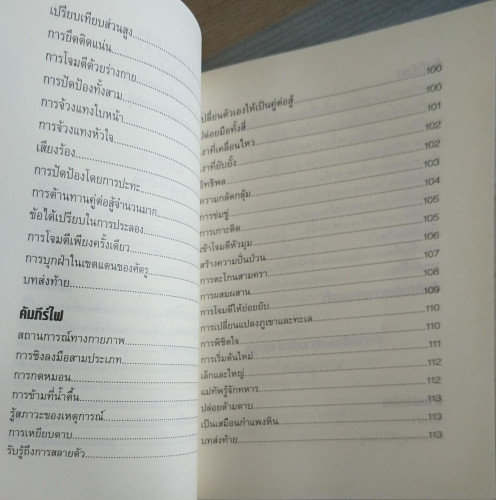 เปรียบเทียบส่วนสูง
การยึดติดแน่น
การโจมตีด้วยร่างกาย
การปัดป้องทั้งสาม
การจ้วงแทงใบหน้า
การจ้วงแทงหัวใจ
เสียงร้อง
การปัดป้องโดยการปะทะ
การต้านทานคู่ต่อสู้จำนวนมาก
ข้อได้เปรียบในการประลอง
การโจมตีเพียงครั้งเดียว
การบุกฝ่าในเขตแดนของศัตรู
บทส่งท้าย
คัมภีร์ไฟ
สถานการณ์ทางกายภาพ
การชิงลงมือสามประเภท
การกดหมอน
การข้ามที่น้ำตื้น
รู้สภาวะของเหตุการณ์
การเหยียบดาบ
รับรู้ถึงการสลายตัว
100
เปลี่ยนตัวเองให้เป็นคู่ต่อสู้ 100
ปล่อยมือทั้งสี่ 101
เงาที่เคลื่อนไหว 102
เงาที่ยับยั้ง 102
อิทธิพล 103
ความกลัดกลุ้ม 104
การข่มขู่ 105
การเกาะติด 105
เข้าโจมตีหัวมุม 106
สร้างความปั่นป่วน 107
การตะโกนสามครา 108
การผสมผสาน 109
การโจมตีให้ย่อยยับ 109
การเปลี่ยนแปลงภูเขาและทะเล 110
การพิชิตใจ 110
การเริ่มต้นใหม่ 111
เล็กและใหญ่ 112
แม่ทัพรู้จักทหาร 112
ปล่อยด้ามดาบ 113
เป็นเสมือนกำแพงหิน 113
บทส่งท้าย 113